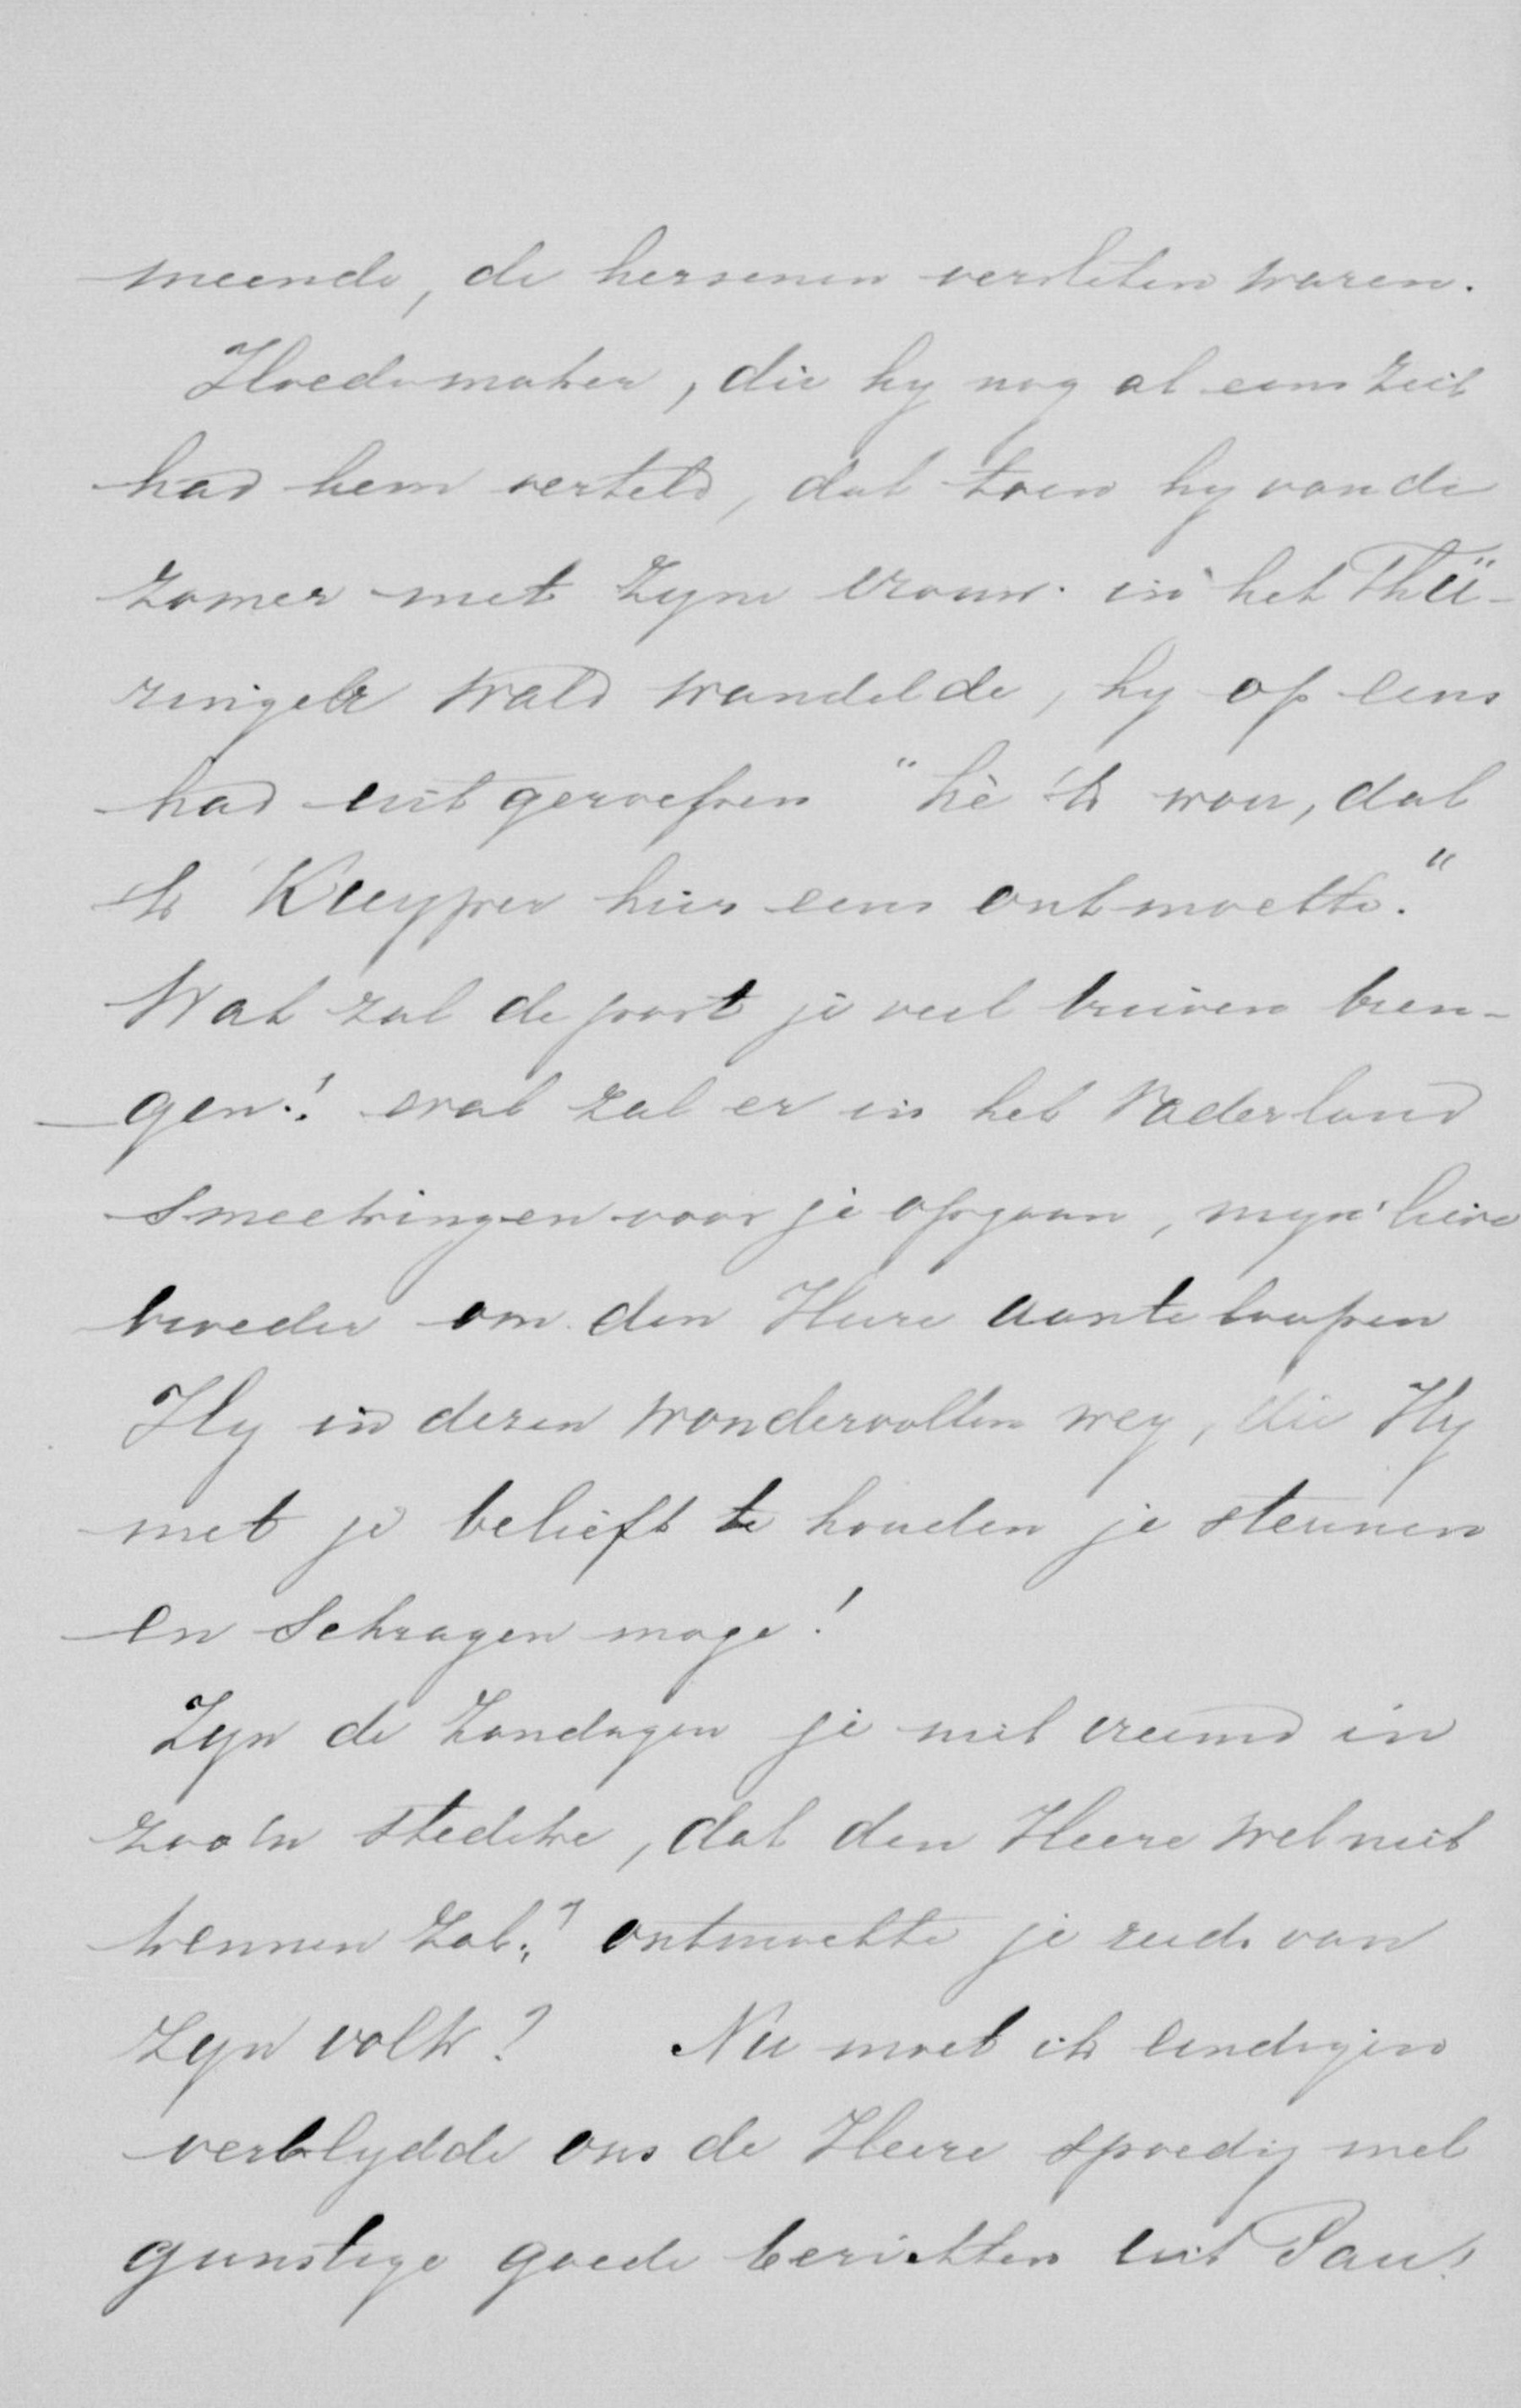 meende, de hersenen versleten waren.
Hoedemaker, die hy nog al eens ziet
had hem verteld, dat toen hy van de
zomer met zyne vrouw in het Thü-
ringer Wald wandelde, hy op eens
had uitgeroepen "hè 'k wou, dat
ik Kuyper hier eens ontmoette."
Wat zal de post je veel brieven bren-
gen! wat zal er in het Vaderland
smeekingen voor je opgaan, myn lieve
broeder om den Heere aante loopen
Hy in dezen wondervollen weg, die Hy
met je belieft te houden je steunen
en schragen moge!
Zyn de Zondagen je niet vreemd in
zoo'n stedeke, dat den Heere wel niet
kennen zal? ontmoette je reeds van
zyn volk? Nu moet ik eindigen
verblydde ons de Heere spoedig met
gunstige goede berichten uit Pau!